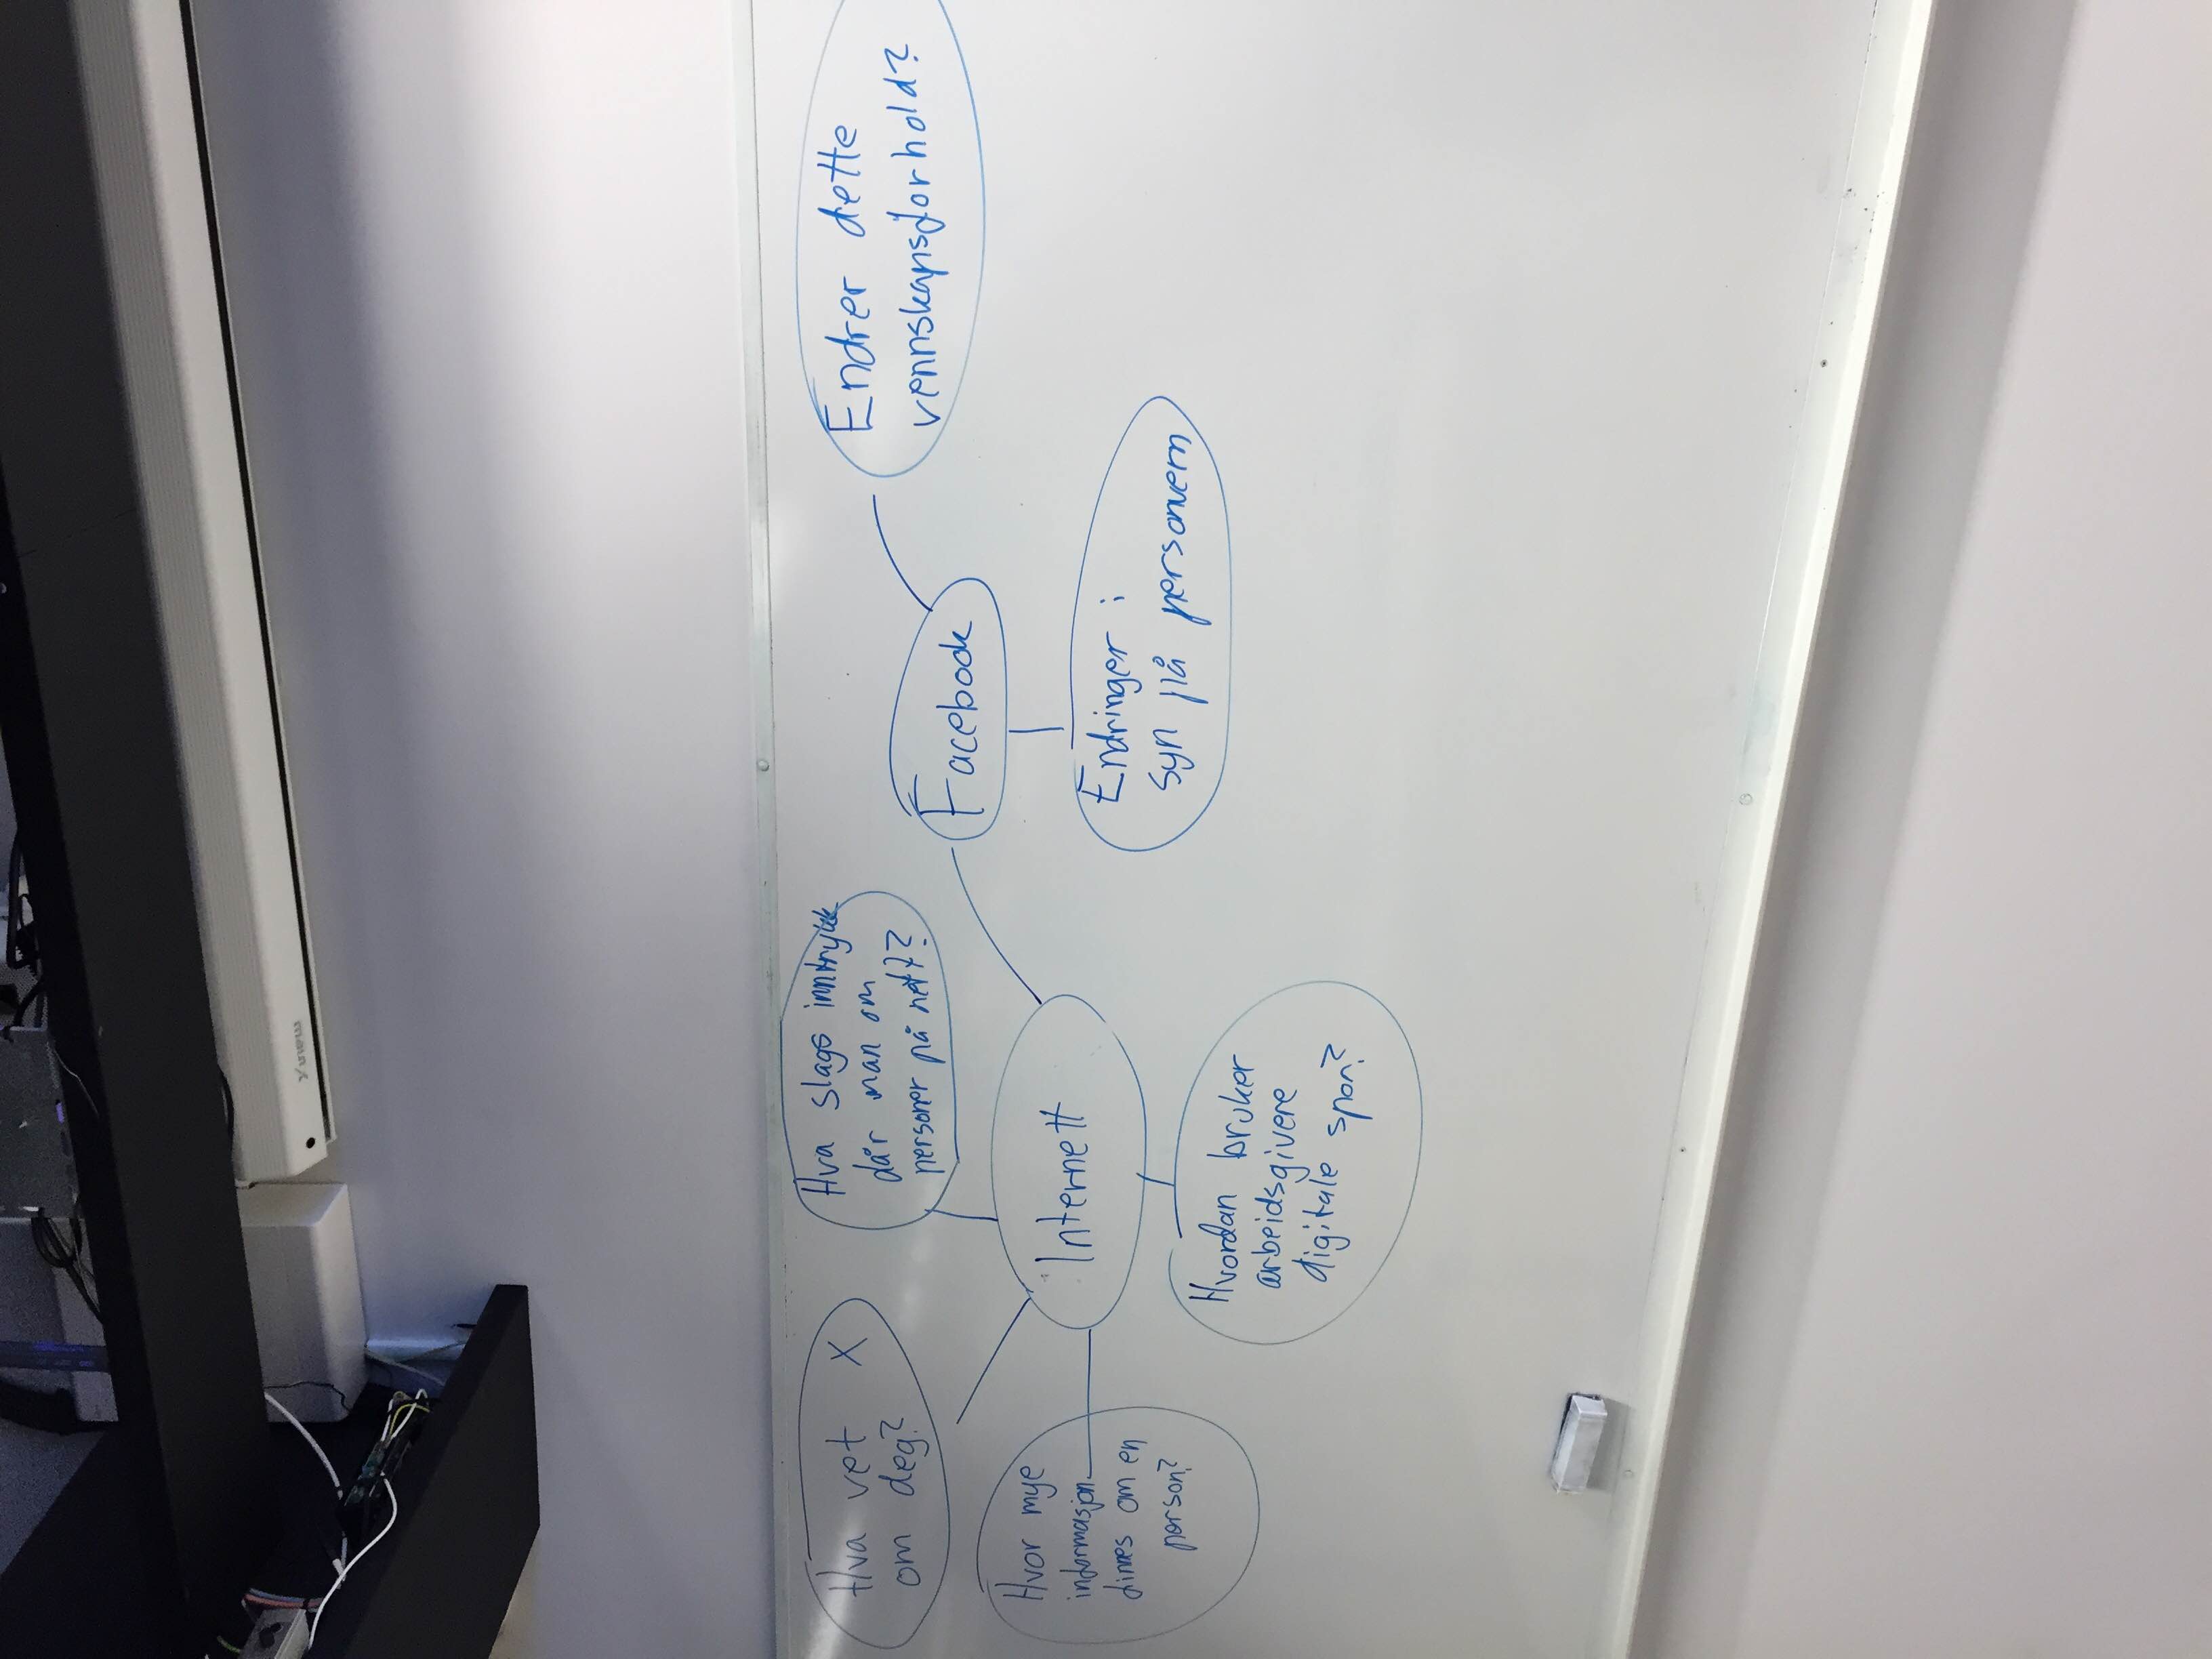 Hva vet X
om deg?
Hva slags inntrykk
får man om
personer på nett?
Endrer dette
vennskapsforhold?
Facebook
Hvor mye
informasjon
finnes om en
person?
Internett
Endringer i
syn på personvern
Hvordan bruker
arbeidsgivere
digitale spor?